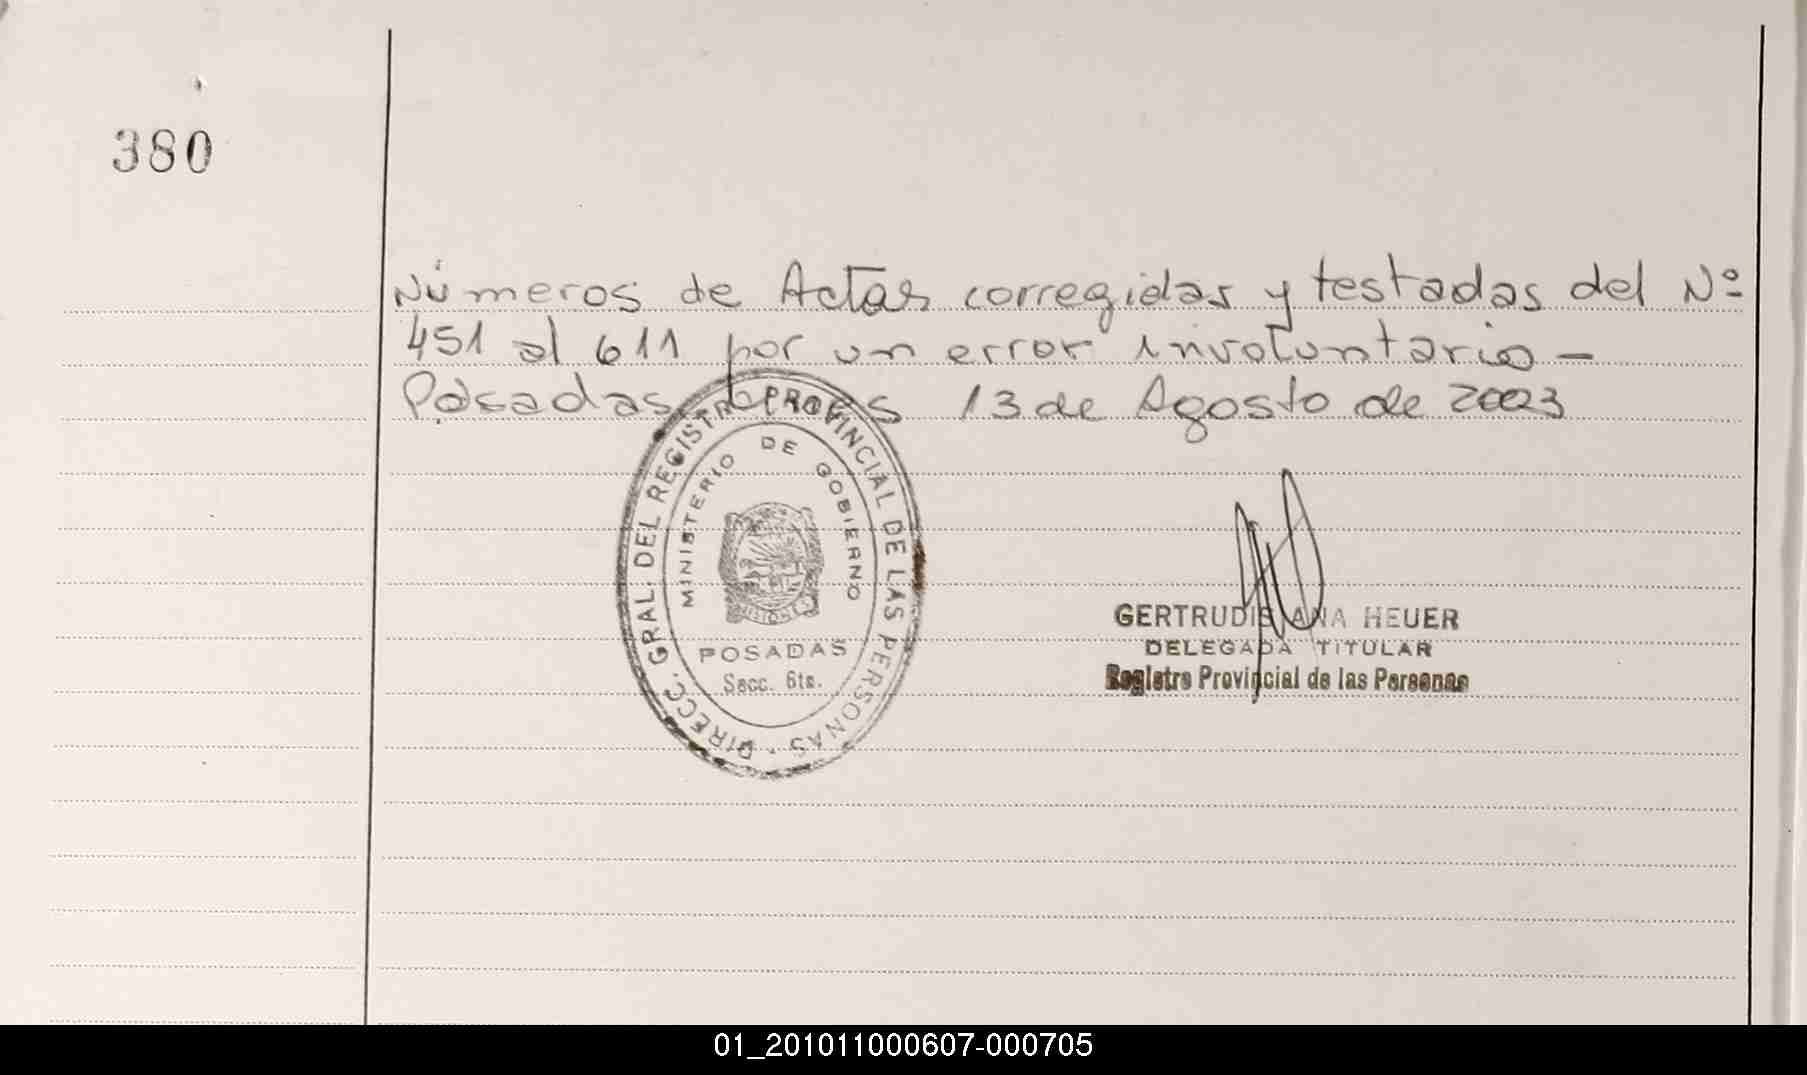 380
Números de Actas corregidas y testadas del Nº
451 al 611 por un error involuntario -
Posadas, 13 de Agosto de 2003
DIRECC. GRAL. DEL REGISTRO PROVINCIAL DE LAS PERSONAS
MINISTERIO DE GOBIERNO
MISIONES
POSADAS
Secc. 6ta.
GERTRUDIS ANA HEUER
DELEGADA TITULAR
Registro Provincial de las Personas
01_201011000607-000705